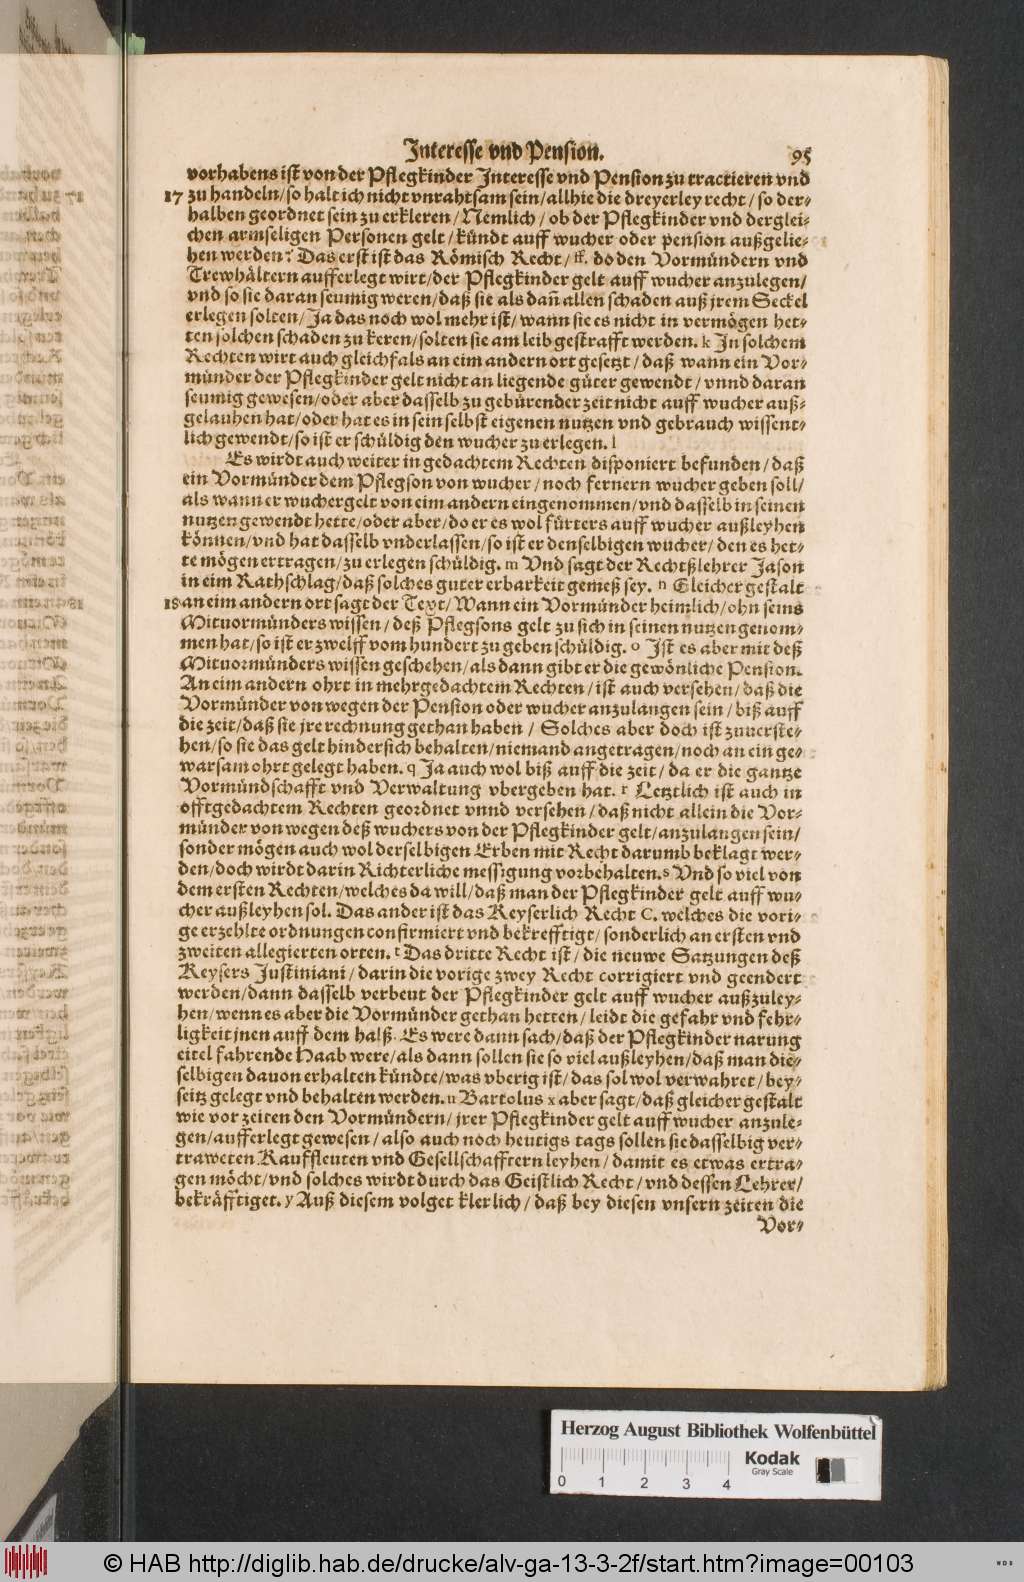 Interesse vnd Pension. 95
vorhabens ist von der Pflegkinder Interesse vnd Pension zu tractieren vnd
17 zu handeln/ so halt ich nicht vnrahtsam sein/ allhie die dreyerley recht/ so der-
halben geordnet sein zu erkleren/ Nemlich/ ob der Pflegkinder vnd derglei-
chen armseligen Personen gelt/ kündt auff wucher oder pension außgelie-
hen werden? Das erst ist das Römisch Recht/ ff. do den Vormündern vnd
Trewhältern aufferlegt wirt/ der Pflegkinder gelt auff wucher anzulegen/
vnd so sie daran seumig weren/ daß sie als dañ allen schaden auß jrem Seckel
erlegen solten/ Ja das noch wol mehr ist/ wann sie es nicht in vermögen het-
ten solchen schaden zu keren/ solten sie am leib gestrafft werden. k In solchem
Rechten wirt auch gleichfals an eim andern ort gesetzt/ daß wann ein Vor-
münder der Pflegkinder gelt nicht an liegende güter gewendt/ vnnd daran
seumig gewesen/ oder aber dasselb zu gebürender zeit nicht auff wucher auß-
gelauhen hat/ oder hat es in sein selbst eigenen nutzen vnd gebrauch wissent-
lich gewendt/ so ist er schüldig den wucher zu erlegen. l
Es wirdt auch weiter in gedachtem Rechten disponiert befunden/ daß
ein Vormünder dem Pflegson von wucher/ noch fernern wucher geben soll/
als wann er wuchergelt von eim andern eingenommen/ vnd dasselb in seinen
nutzen gewendt hette/ oder aber/ do er es wol fürters auff wucher außleyhen
können/ vnd hat dasselb vnderlassen/ so ist er denselbigen wucher/ den es het-
te mögen ertragen/ zu erlegen schüldig. m Vnd sagt der Rechtßlehrer Jason
in eim Rathschlag/ daß solches guter erbarkeit gemeß sey. n Gleicher gestalt
18 an eim andern ort sagt der Text/ Wann ein Vormünder heimlich/ ohn seins
Mituormünders wissen/ deß Pflegsons gelt zu sich in seinen nutzen genom-
men hat/ so ist er zwelff vom hundert zu geben schüldig. o Ist es aber mit deß
Mituormünders wissen geschehen/ als dann gibt er die gewönliche Pension.
An eim andern ohrt in mehrgedachtem Rechten/ ist auch versehen/ daß die
Vormünder von wegen der Pension oder wucher anzulangen sein/ biß auff
die zeit/ daß sie jre rechnung gethan haben/ Solches aber doch ist zuuerste-
hen/ so sie das gelt hindersich behalten/ niemand angetragen/ noch an ein ge-
warsam ohrt gelegt haben. q Ja auch wol biß auff die zeit/ da er die gantze
Vormündschafft vnd Verwaltung vbergeben hat. r Letztlich ist auch in
offtgedachtem Rechten geordnet vnnd versehen/ daß nicht allein die Vor-
münder von wegen deß wuchers von der Pflegkinder gelt/ anzulangen sein/
sonder mögen auch wol derselbigen Erben mit Recht darumb beklagt wer-
den/ doch wirdt darin Richterliche messigung vorbehalten. s Vnd so viel von
dem ersten Rechten/ welches da will/ daß man der Pflegkinder gelt auff wu-
cher außleyhen sol. Das ander ist das Keyserlich Recht C. welches die vori-
ge erzehlte ordnungen confirmiert vnd bekrefftigt/ sonderlich an ersten vnd
zweiten allegierten orten. t Das dritte Recht ist/ die neuwe Satzungen deß
Keysers Justiniani/ darin die vorige zwey Recht corrigiert vnd geendert
werden/ dann dasselb verbeut der Pflegkinder gelt auff wucher außzuley-
hen/ wenn es aber die Vormünder gethan hetten/ leidt die gefahr vnd fehr-
ligkeit jnen auff dem halß. Es were dann sach/ daß der Pflegkinder narung
eitel fahrende Haab were/ als dann sollen sie so viel außleyhen/ daß man die-
selbigen dauon erhalten kündte/ was vberig ist/ das sol wol verwahret/ bey-
seitz gelegt vnd behalten werden. u Bartolus x aber sagt/ daß gleicher gestalt
wie vor zeiten den Vormündern/ jrer Pflegkinder gelt auff wucher anzule-
gen/ aufferlegt gewesen/ also auch noch heutigs tags sollen sie dasselbig ver-
traweten Kauffleuten vnd Gesellschafftern leyhen/ damit es etwas ertra-
gen möcht/ vnd solches wirdt durch das Geistlich Recht/ vnd dessen Lehrer/
bekräfftiget. y Auß diesem volget klerlich/ daß bey diesen vnsern zeiten die
Vor-
Herzog August Bibliothek Wolfenbüttel
Kodak
Gray Scale
0 1 2 3 4
© HAB http://diglib.hab.de/drucke/alv-ga-13-3-2f/start.htm?image=00103